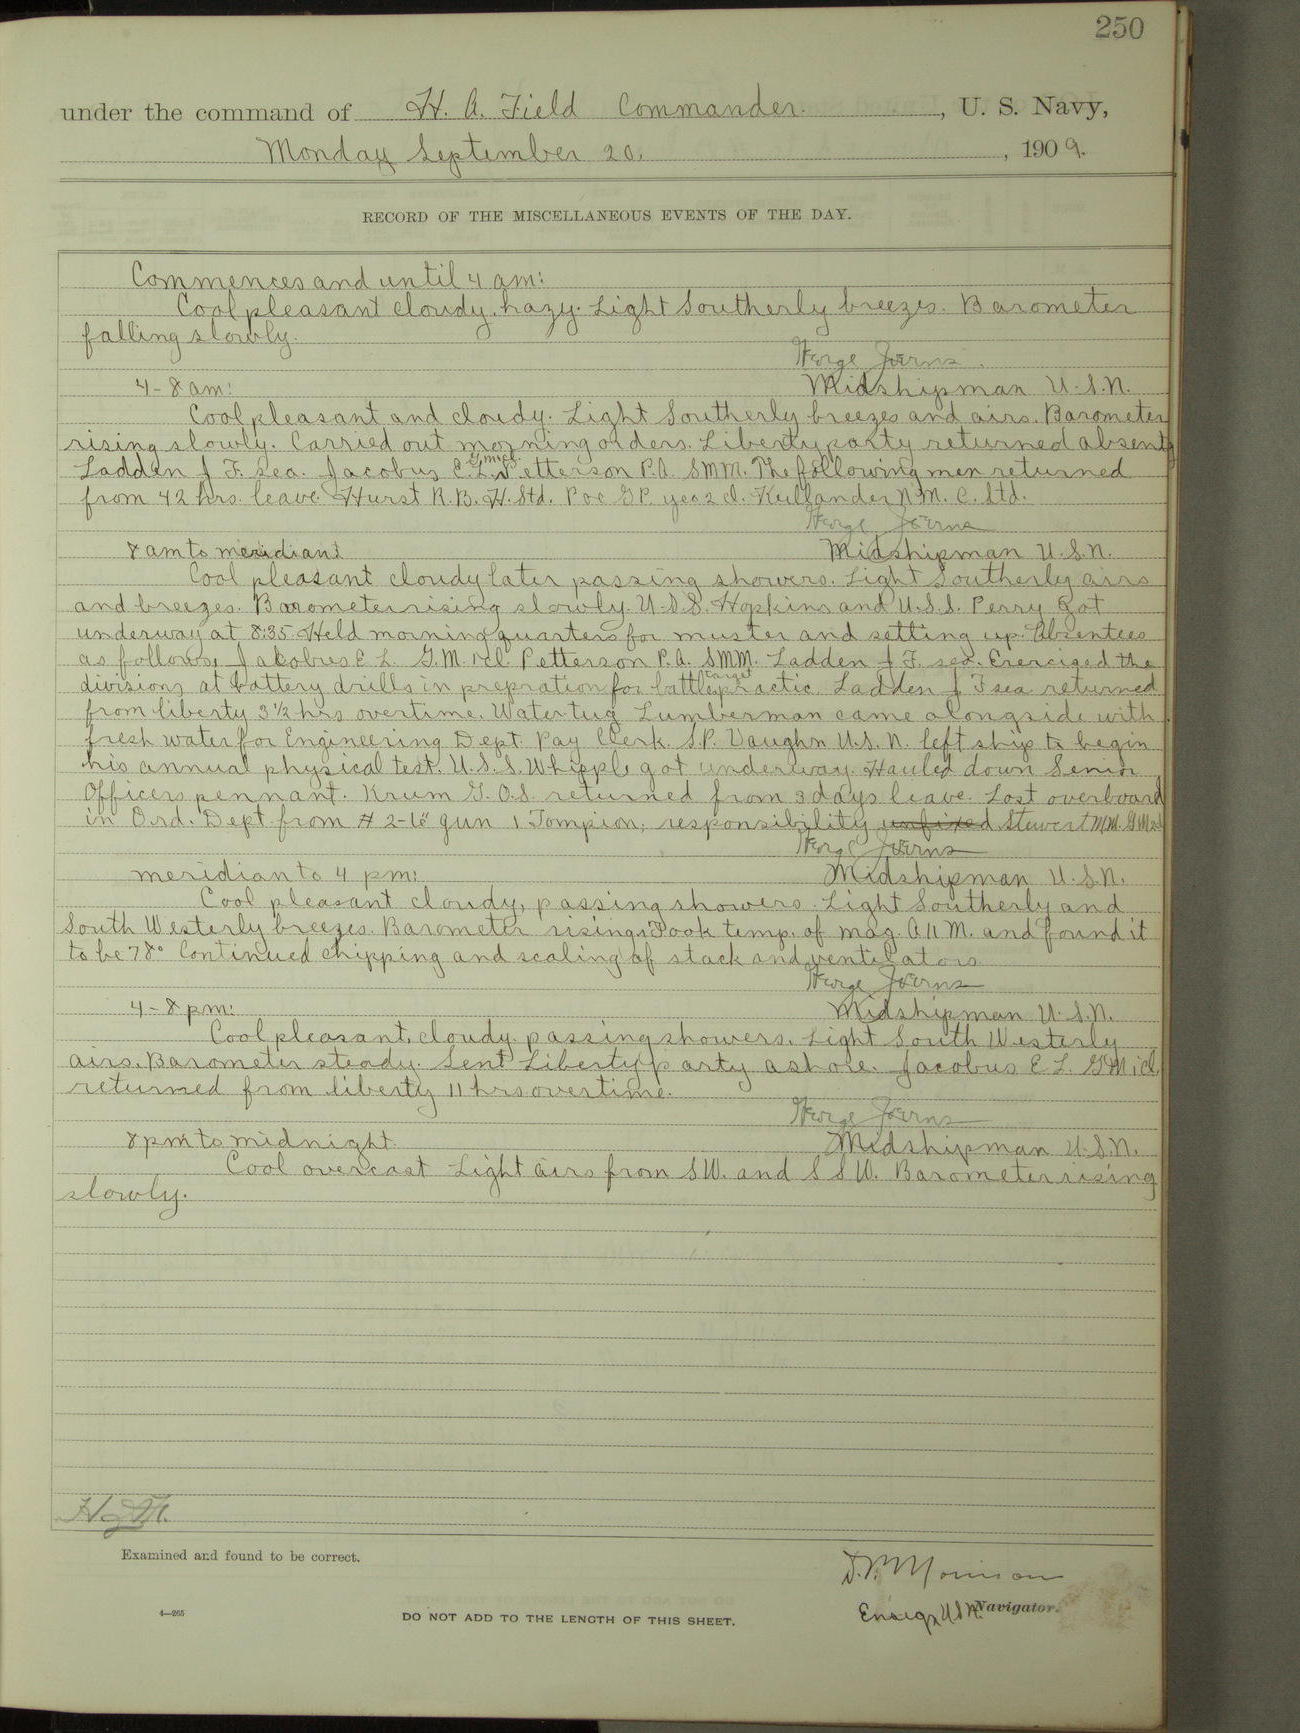 250
under the command of H. A. Field Commander, U. S. Navy,
Monday September 20, 1909.
RECORD OF THE MISCELLANEOUS EVENTS OF THE DAY.
Commences and until 4 am:
Cool pleasant cloudy, hazy. Light Southerly breezes. Barometer
falling slowly.
4-8 am: Midshipman U.S.N.
Cool pleasant and cloudy. Light Southerly breezes and airs. Barometer
rising slowly. Carried out morning orders. Liberty party returned absent,
Ladden J F. sea. Jacobus E. L. G.M.1cl. Petterson P.A. SMM. The following men returned
from 42 hrs. leave. Hurst R.B. H. Std. Poe G P. yeo 2 cl. Kullander N M. C. Std.
8 am to meridian: Midshipman U.S.N.
Cool pleasant cloudy later passing showers. Light Southerly airs
and breezes. Barometer rising slowly. U.S.S. Hopkins and U.S.S. Perry got
underway at 8:35. Held morning quarters for muster and setting up. Absentees
as follows, Jakobus E L. G.M. 1cl. Petterson P.A. SMM. Ladden J F. sea. Exercised the
divisions at battery drills in prepration for battle target practic. Ladden J F sea returned
from liberty 3½ hrs overtime. Water tug Lumberman came alongside with
fresh water for Engineering Dept. Pay Clerk. S.P. Vaughn U.S.N. left ship to begin
his annual physical test. U.S.S. Whipple got underway. Hauled down Senior
Officers pennant. Krum G. O.S. returned from 3 days leave. Lost overboard
in Ord. Dept from # 2-6" gun 1 Tompion, responsibility unfixed Stewert MM. GM2cl
meridian to 4 pm: Midshipman U.S.N.
Cool pleasant cloudy, passing showers. Light Southerly and
South Westerly breezes. Barometer rising. Took temp. of mag. A 11 M. and found it
to be 78° Continued chipping and scaling of stack and ventilators
4-8 pm: Midshipman U.S.N.
Cool pleasant, cloudy. passing showers. Light South Westerly
airs. Barometer steady. Sent Liberty party ashore. Jacobus E L. G M 1cl.
returned from liberty 11 hrs overtime.
8 pm to midnight. Midshipman U.S.N.
Cool overcast Light airs from SW. and S S W. Barometer rising
slowly.
Examined and found to be correct.
Morrison
Ensign U.S.N. Navigator.
4—265
DO NOT ADD TO THE LENGTH OF THIS SHEET.